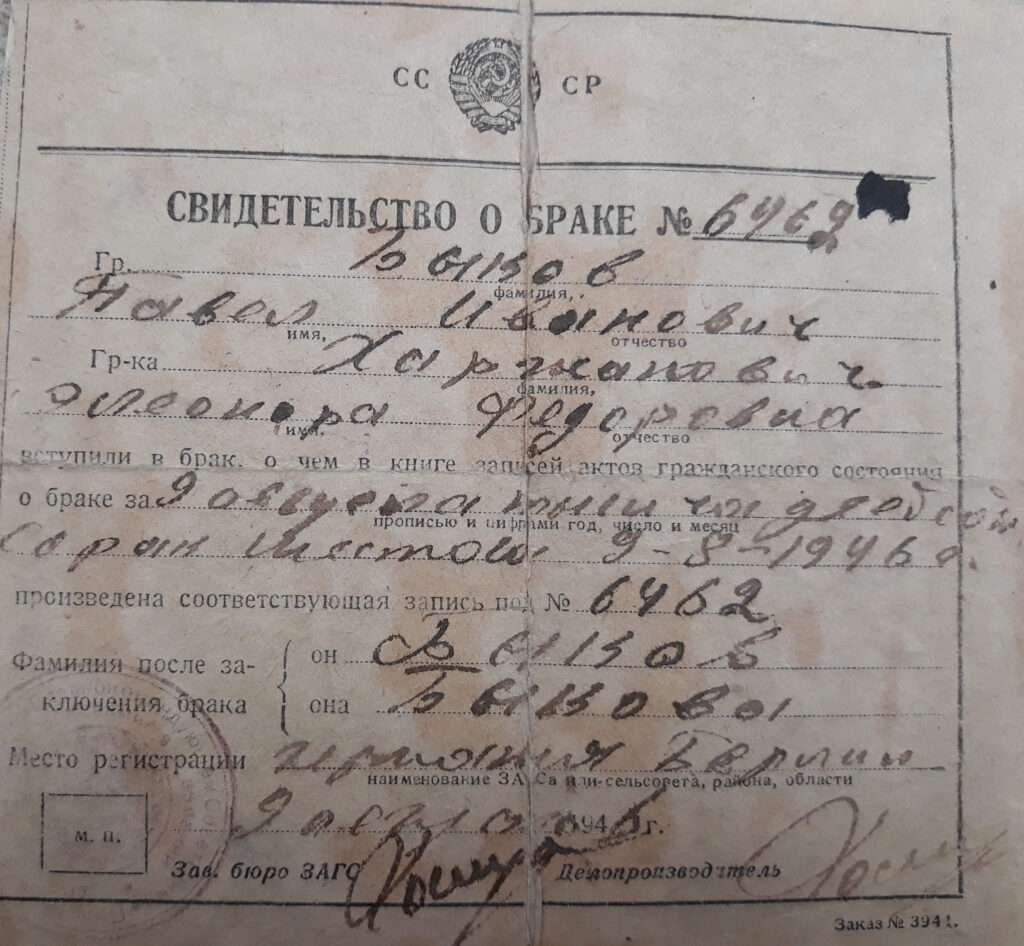 СС СР
СВИДЕТЕЛЬСТВО О БРАКЕ № 6462
Гр. Быков
фамилия,
Павел Иванович
имя, отчество
Гр-ка Харжанович
фамилия,
Элеонора Федоровна
имя, отчество
вступили в брак, о чем в книге записей актов гражданского состояния
о браке за 9 августа тысяча девятьсот
прописью и цифрами год, число и месяц
сорок шестого 9-8-1946 г.
произведена соответствующая запись под № 6462
Фамилия после за-
ключения брака
он Быков
она Быкова
Место регистрации Германия Берлин
наименование ЗАГСа или сельсовета, района, области
9 августа 1946 г.
м. п.
Зав. бюро ЗАГС Делопроизводитель
Заказ № 3941.